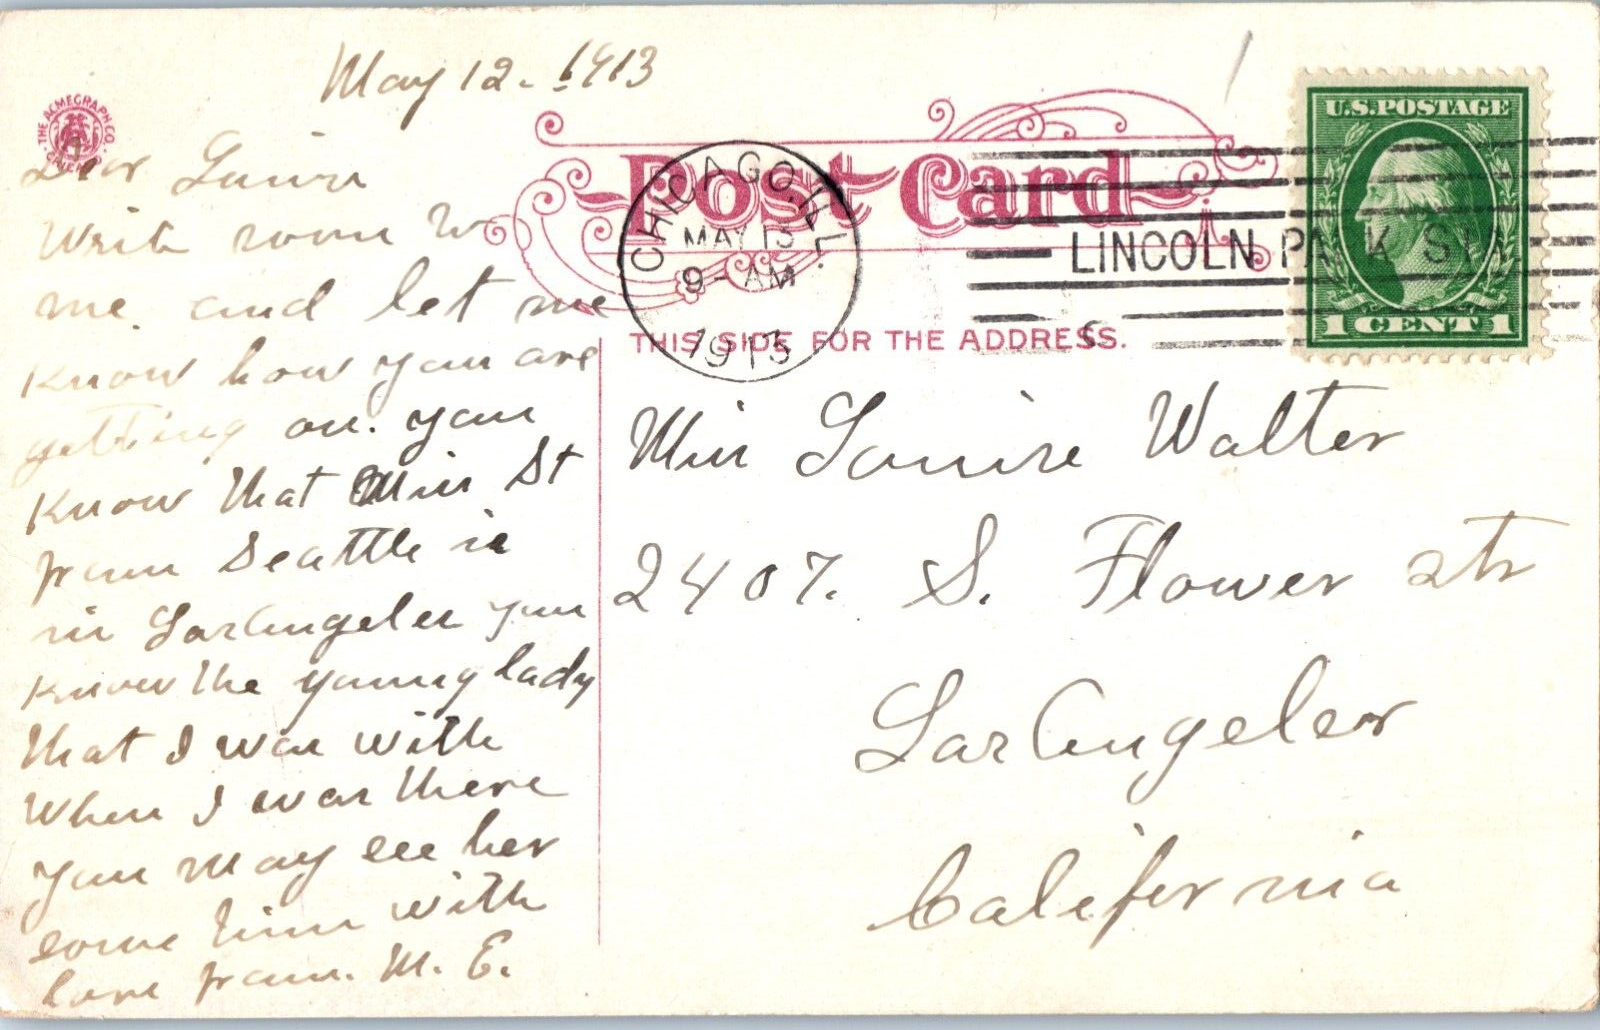 May 12. 1913
THE ACMEGRAPH CO.
CHICAGO
Dear Louise
Write soon to
me. and let me
Know how you are
getting on. you
Know that Miss St
from Seattle is
in Los Angeles you
Know the young lady
that I was with
When I was there
you may see her
some time with
love from. M. E.
Post Card
CHICAGO, ILL.
MAY 13
9 - AM
1913
LINCOLN PARK STA
U.S. POSTAGE
1 CENT 1
THIS SIDE FOR THE ADDRESS.
Miss Louise Walter
2407. S. Flower str
Los Angeles
California